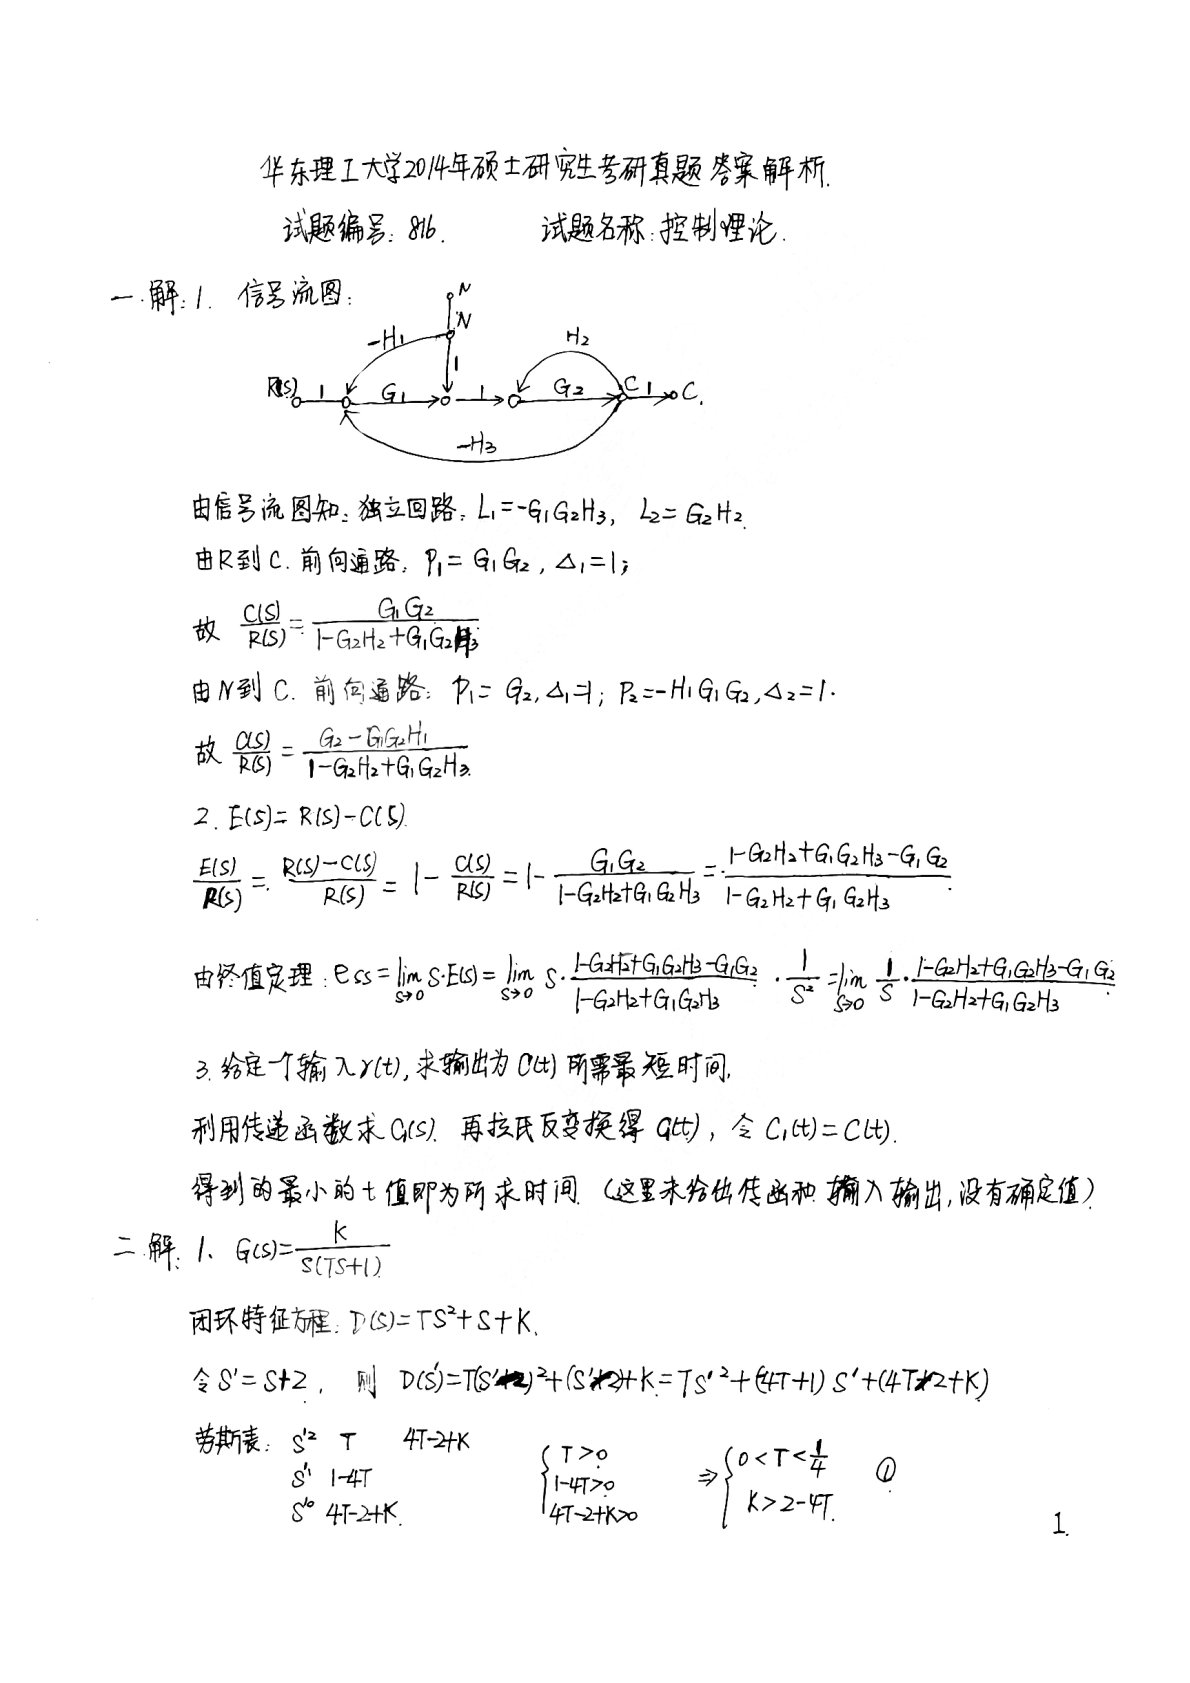 华东理工大学2014年硕士研究生考研真题答案解析.
试题编号: 816. 试题名称: 控制理论.
一.解: 1. 信号流图:
N
N
-H1 H2
1
R(s) 1 G1 1 G2 C 1 C.
-H3
由信号流图知: 独立回路: L1=-G1G2H3, L2=G2H2.
由R到C. 前向通路: P1=G1G2, Δ1=1;
故 C(s)/R(s) = G1G2/(1-G2H2+G1G2H3)
由N到C. 前向通路: P1=G2, Δ1=1; P2=-H1G1G2, Δ2=1.
故 C(s)/R(s) = (G2-G1G2H1)/(1-G2H2+G1G2H3).
2. E(s)=R(s)-C(s).
E(s)/R(s) = (R(s)-C(s))/R(s) = 1-C(s)/R(s) = 1-G1G2/(1-G2H2+G1G2H3) = (1-G2H2+G1G2H3-G1G2)/(1-G2H2+G1G2H3).
由终值定理: ess=lim s→0 S·E(s)=lim s→0 S·(1-G2H2+G1G2H3-G1G2)/(1-G2H2+G1G2H3)·1/S²=lim s→0 1/S·(1-G2H2+G1G2H3-G1G2)/(1-G2H2+G1G2H3)
3. 给定一个输入r(t), 求输出为C(t)所需最短时间.
利用传递函数求C1(s). 再拉氏反变换得C1(t), 令C1(t)=C(t).
得到的最小的t值即为所求时间. (这里未给出传函和输入输出, 没有确定值)
二.解: 1、G(s)=K/(S(TS+1))
闭环特征方程: D(s)=TS²+S+K.
令S'=S+2, 则 D(s')=T(S'-2)²+(S'-2)+K=TS'²+(-4T+1)S'+(4T-2+K)
劳斯表: S'² T 4T-2+K
S'¹ 1-4T
S'⁰ 4T-2+K.
{T>0
1-4T>0
4T-2+K>0
⇒ {0<T<1/4
K>2-4T.
①
1.